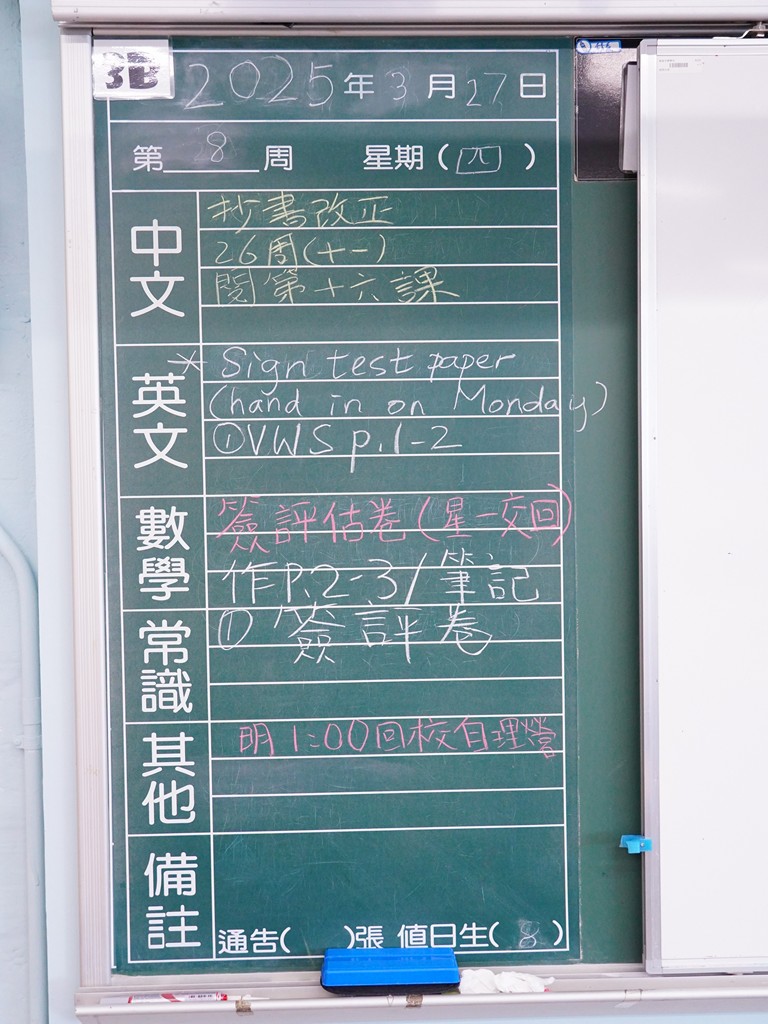 3B
2025年3月27日
第8周 星期(四)
中文
抄書改正
26周(十一)
閱第十六課
英文
* Sign test paper
(hand in on Monday)
①VWS p.1-2
數學
簽評估卷(星一交回)
作P.2-3/筆記
常識
① 簽評卷
其他
明1:00回校自理營
備註
通告( )張 值日生(8)